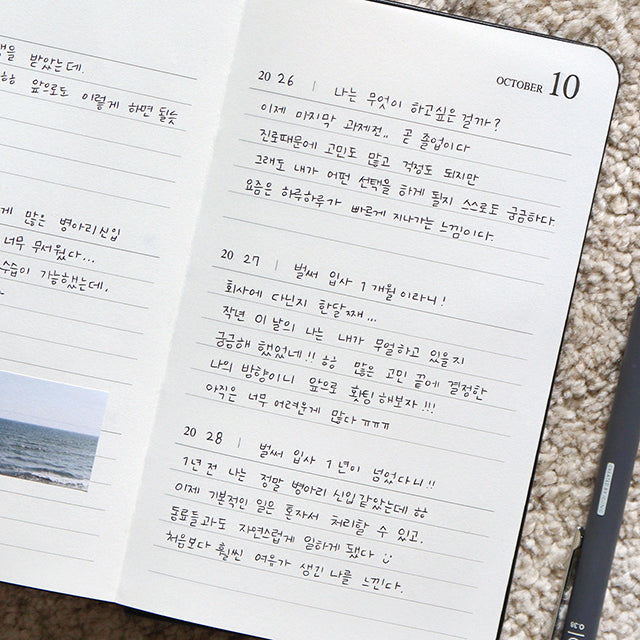 을 받았는데.
ㅎㅎ 앞으로도 이렇게 하면 될듯
게 많은 병아리신입
너무 무서웠다...
수습이 가능했는데,
OCTOBER 10
20 26 | 나는 무엇이 하고싶은 걸까?
이제 마지막 과제전.. 곧 졸업이다
진로때문에 고민도 많고 걱정도 되지만
그래도 내가 어떤 선택을 하게 될지 스스로도 궁금하다.
요즘은 하루하루가 빠르게 지나가는 느낌이다.
20 27 | 벌써 입사 1개월이라니!
회사에 다닌지 한달째...
작년 이날의 나는 내가 무얼하고 있을지
궁금해 했었네!! ㅎㅎ 많은 고민 끝에 결정한
나의 방향이니 앞으로 횟팅해보자!!!
아직은 너무 어려운게 많다 ㅠㅠㅠ
20 28 | 벌써 입사 1년이 넘었다니!!
1년 전 나는 정말 병아리 신입같았는데 ㅎㅎ
이제 기본적인 일은 혼자서 처리할 수 있고.
동료들과도 자연스럽게 일하게 됐다
처음보다 훨씬 여유가 생긴 나를 느낀다.